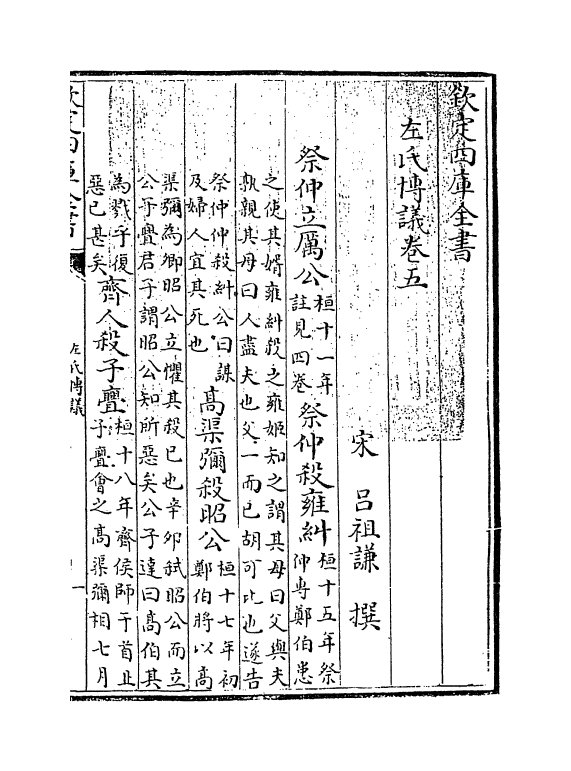 欽定四庫全書
左氏博議卷五
宋 呂祖謙 撰
祭仲立厲公桓十一年註見四卷祭仲殺雍糾桓十五年祭仲專鄭伯患
之使其婿雍糾殺之雍姬知之謂其母曰父與夫
孰親其母曰人盡夫也父一而已胡可比也遂告
祭仲仲殺糾公曰謀及婦人宜其死也高渠彌殺昭公桓十七年初鄭伯將以高
渠彌為卿昭公立懼其殺已也辛卯弒昭公而立
公子亹君子謂昭公知所惡矣公子達曰高伯其
為戮乎復惡已甚矣齊人殺子亹桓十八年齊侯師于首止子亹會之高渠彌相七月
欽定四庫全書
左氏博議
一